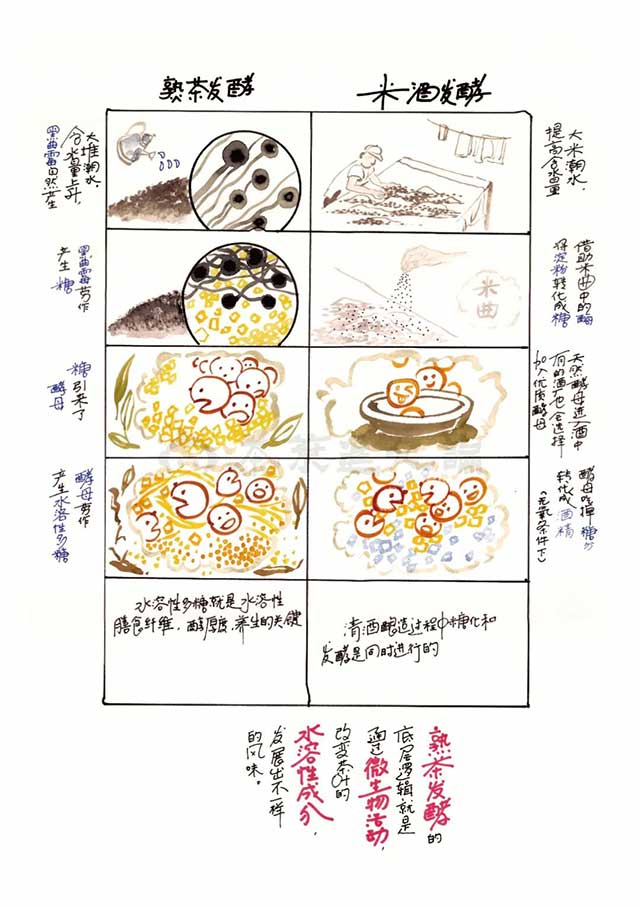 熟茶发酵
米酒发酵
大堆潮水，
含水量上升，
黑曲霉自然产生
大米潮水，
提高含水量
黑曲霉劳作
产生糖
借助米曲中的酶
将淀粉转化成糖
米曲
糖引来了
酵母
天然酵母进入酒中
有的酒厂也会选择
加入优质酵母
酵母劳作
产生水溶性多糖
酵母吃掉糖分
转化成酒精
(无氧条件下)
水溶性多糖就是水溶性
膳食纤维，酵厚度，养生的关键
清酒酿造过程中糖化和
发酵是同时进行的
熟茶发酵的
底层逻辑就是
通过微生物活动，
改变茶叶的
水溶性成分，
发展出不一样
的风味。